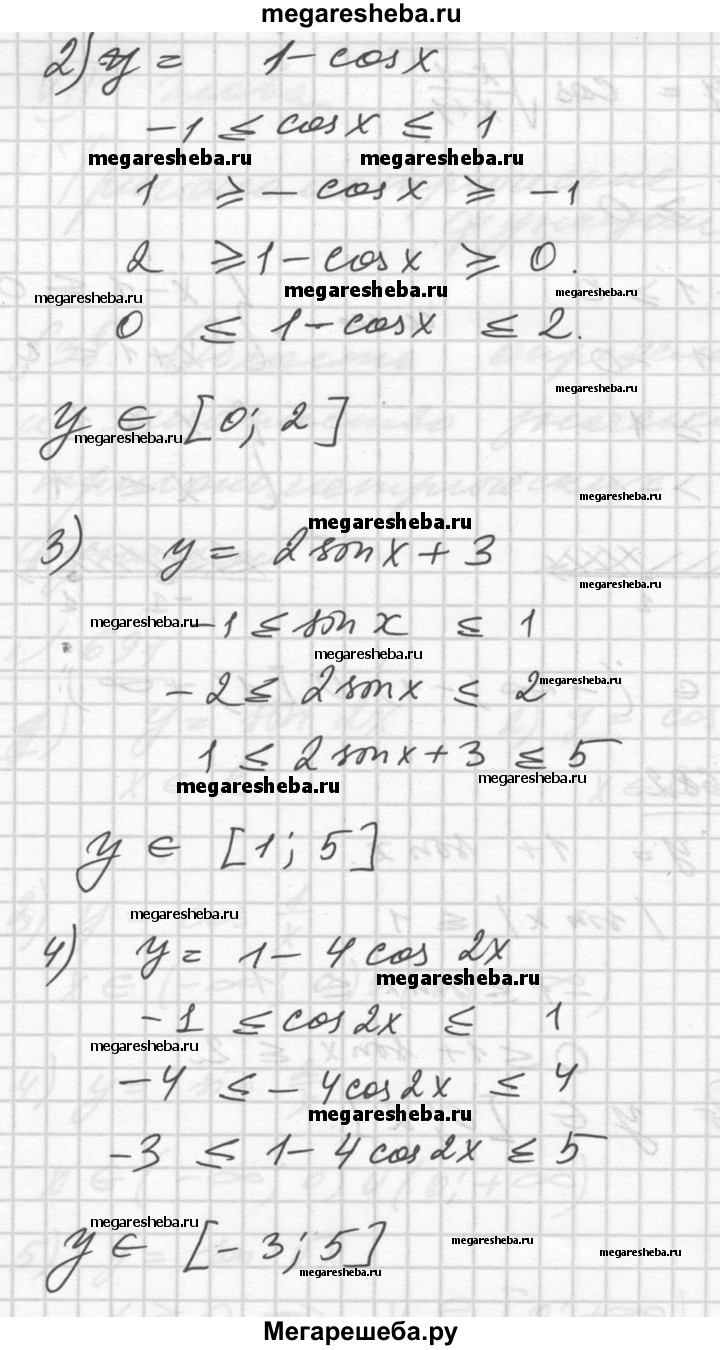 megaresheba.ru
2) y = 1 - cos x
-1 ≤ cos x ≤ 1
megaresheba.ru megaresheba.ru
1 ≥ - cos x ≥ -1
2 ≥ 1 - cos x ≥ 0.
megaresheba.ru megaresheba.ru megaresheba.ru
0 ≤ 1 - cos x ≤ 2.
megaresheba.ru
y ∈ [0; 2]
megaresheba.ru
megaresheba.ru
megaresheba.ru
3) y = 2 sin x + 3
megaresheba.ru
-1 ≤ sin x ≤ 1
megaresheba.ru
megaresheba.ru
-2 ≤ 2 sin x ≤ 2
megaresheba.ru
1 ≤ 2 sin x + 3 ≤ 5
megaresheba.ru megaresheba.ru
y ∈ [1; 5]
megaresheba.ru
4) y = 1 - 4 cos 2x
megaresheba.ru
-1 ≤ cos 2x ≤ 1
megaresheba.ru
-4 ≤ - 4 cos 2x ≤ 4
megaresheba.ru
-3 ≤ 1 - 4 cos 2x ≤ 5
megaresheba.ru
y ∈ [-3; 5]
megaresheba.ru megaresheba.ru
megaresheba.ru
Мегарешеба.ру